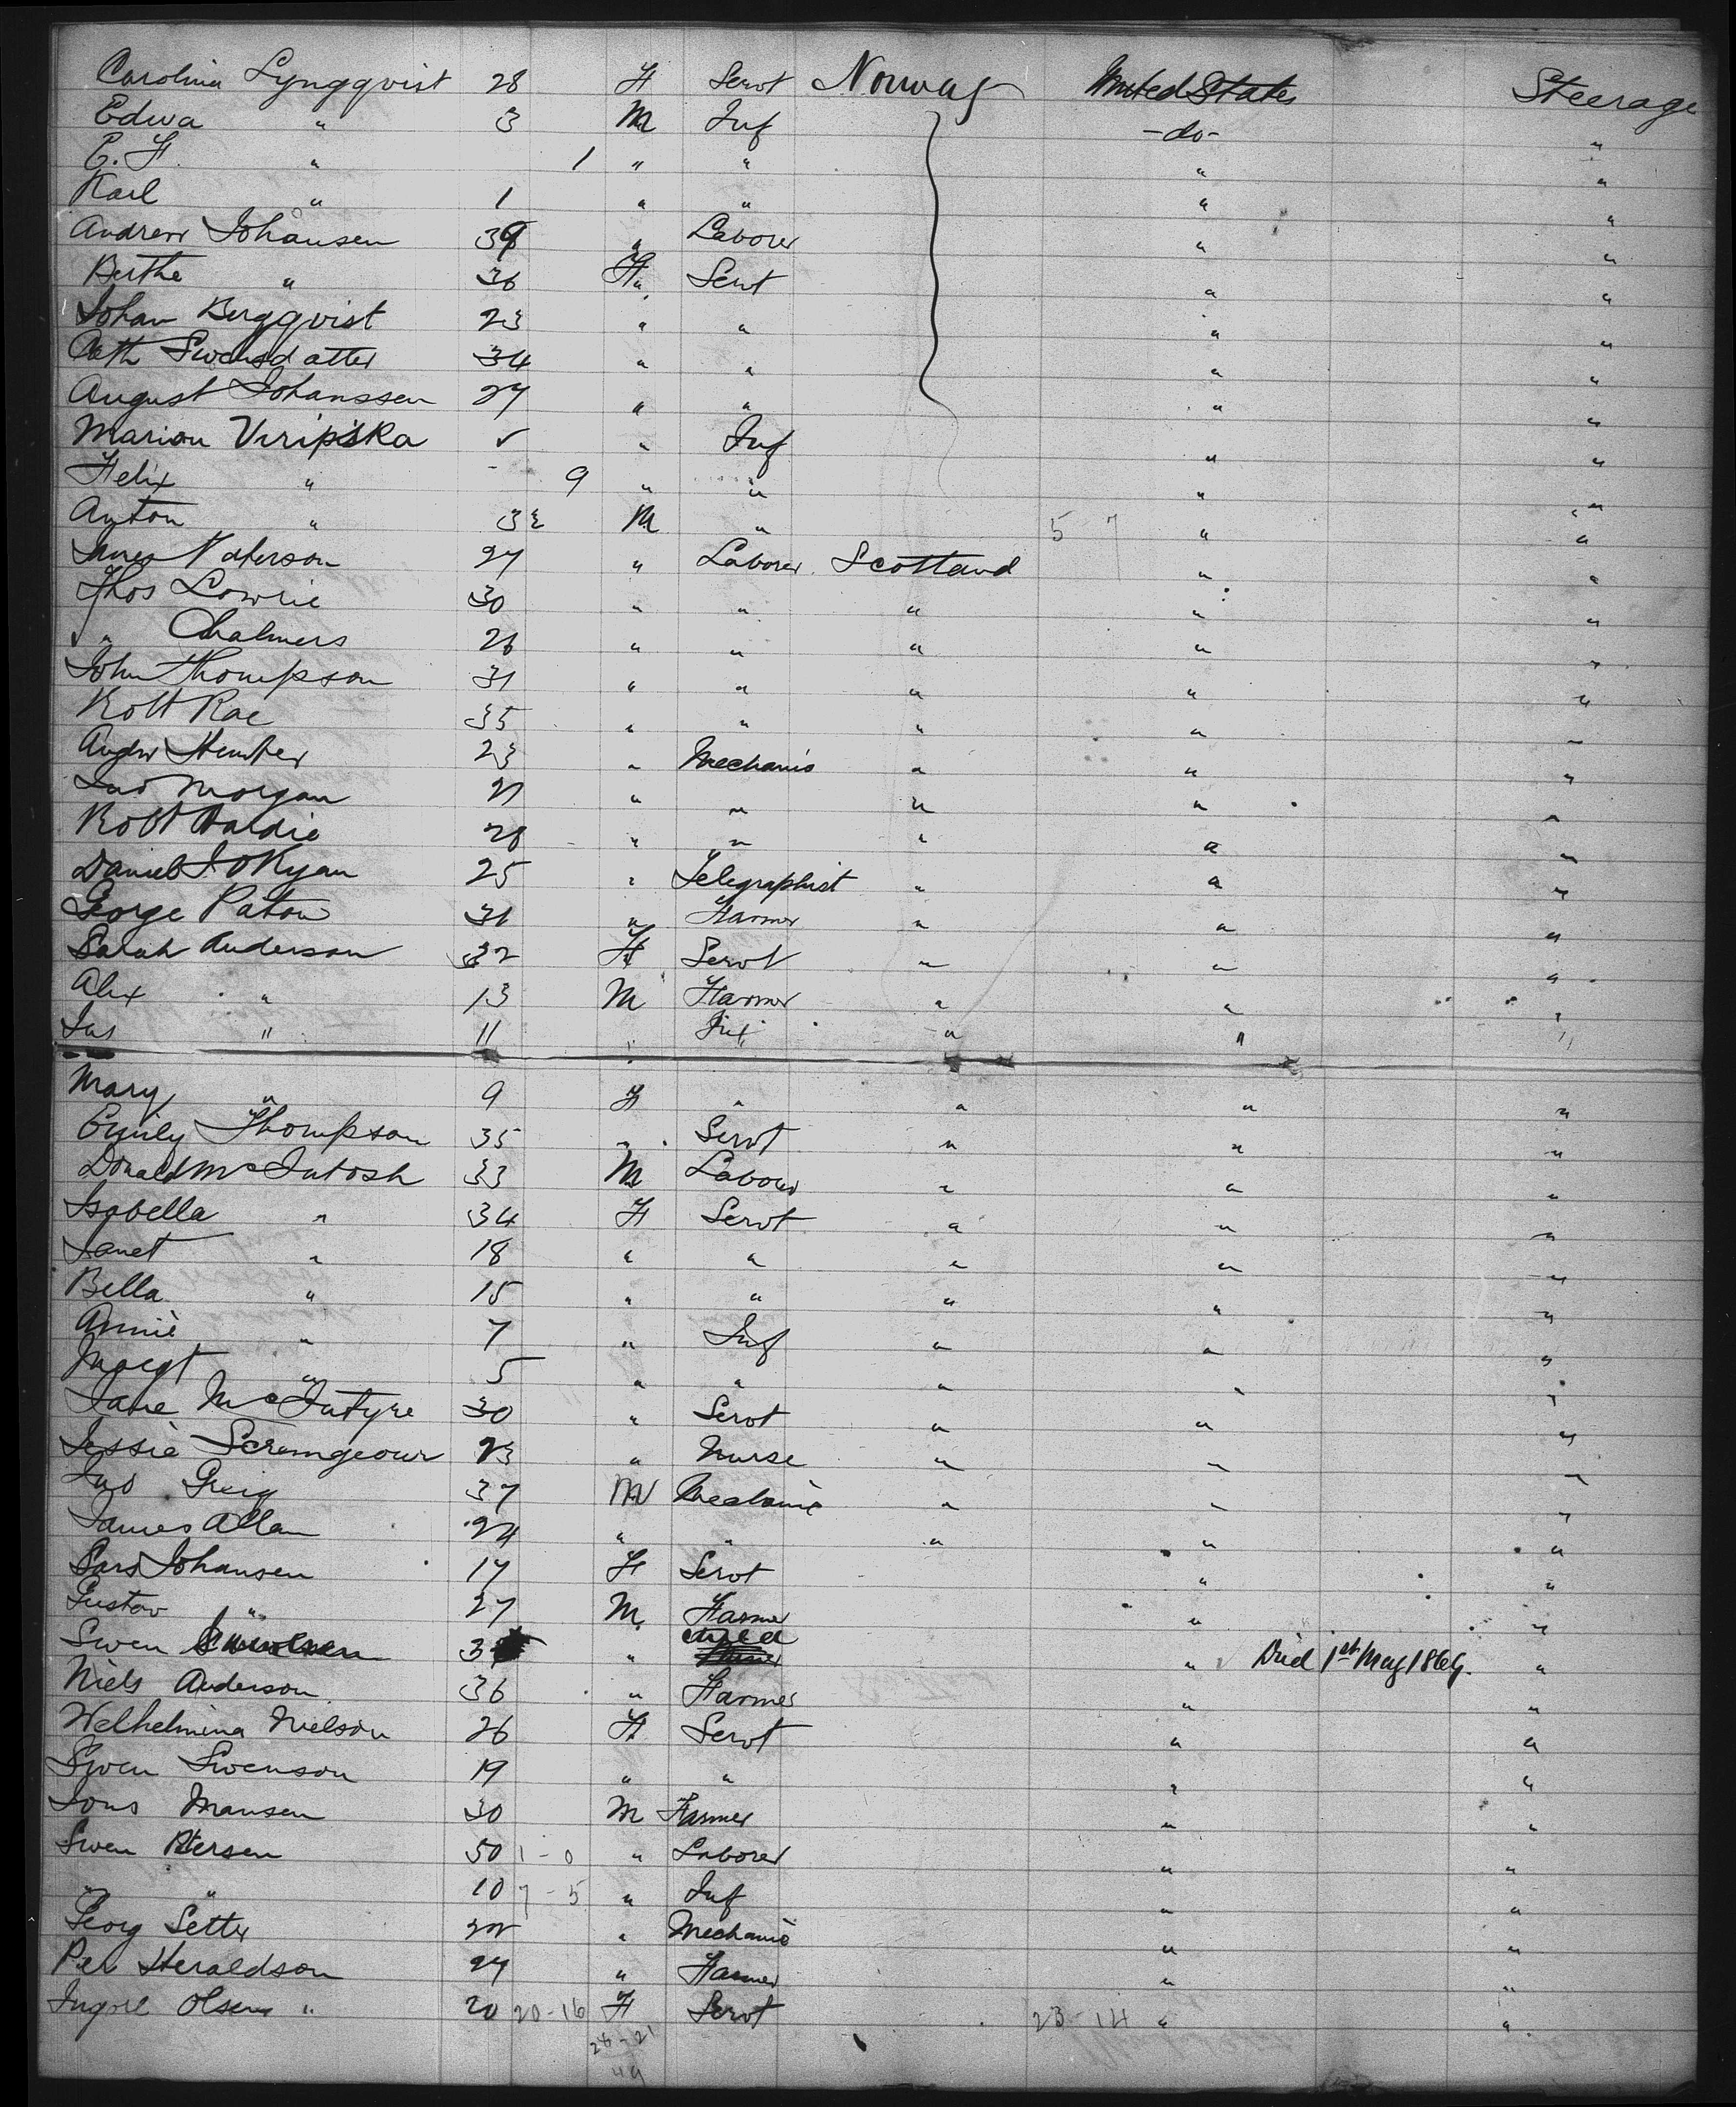 Carolina Lyngqvist 28 F Servt Norway United States Steerage
Edwa " 3 M Inf -do- "
C. F. " 1 " " " "
Karl " 1 " " " "
Andrew Johansen 39 " Laborer " "
Berthe " 36 F Servt " "
Johan Bergqvist 23 " " " "
Cath Swensdatter 34 " " " "
August Johanssen 27 " " " "
Marion Viripska " Inf " "
Felix " 9 " " " "
Anton " 32 M " 5 7 " "
James Paterson 27 " Laborer Scotland " "
Thos Lowrie 30 " " " " "
" Chalmers 26 " " " " "
John Thompson 31 " " " " "
Robt Rae 35 " " " " "
Andw Hunter 23 " Mechanic " " "
Jno Morgan 21 " " " " "
Robt Hardie 28 " " " " "
Daniel J O Ryan 25 " Telegraphist " " "
George Paton 31 " Farmer " " "
Sarah Anderson 32 F Servt " " "
Alex " 13 M Farmer " " "
Jas " 11 " Inf " " "
Mary " 9 F " " " "
Emily Thompson 35 " Servt " " "
Donald McIntosh 33 M Laborer " " "
Isabella " 34 F Servt " " "
Janet " 18 " " " " "
Bella " 15 " " " " "
Annie " 7 " Inf " " "
Margt " 5 " " " " "
Jane McIntyre 30 " Servt " " "
Jessie Scremgeour 23 " Nurse " " "
Jno Greig 37 M Mechanic " " "
James Allan 24 " " " " "
Lars Johansen 17 F Servt " "
Gustav " 27 M Farmer " "
Swen 3 " Child " Died 1st May 1869. "
Niels Anderson 36 " Farmer " "
Welhelmina Nielson 26 F Servt " "
Swen Swenson 19 " " " "
Jons Mansen 30 M Farmer " "
Swen Petersen 50 1 - 0 " Laborer " "
" " 10 7 - 5 " Inf " "
Georg Setter " Mechanic " "
Per Heraldson 27 " Farmer " "
Olsen " 20 20 - 16 F Servt 23 - 14 " "
28 - 21
49